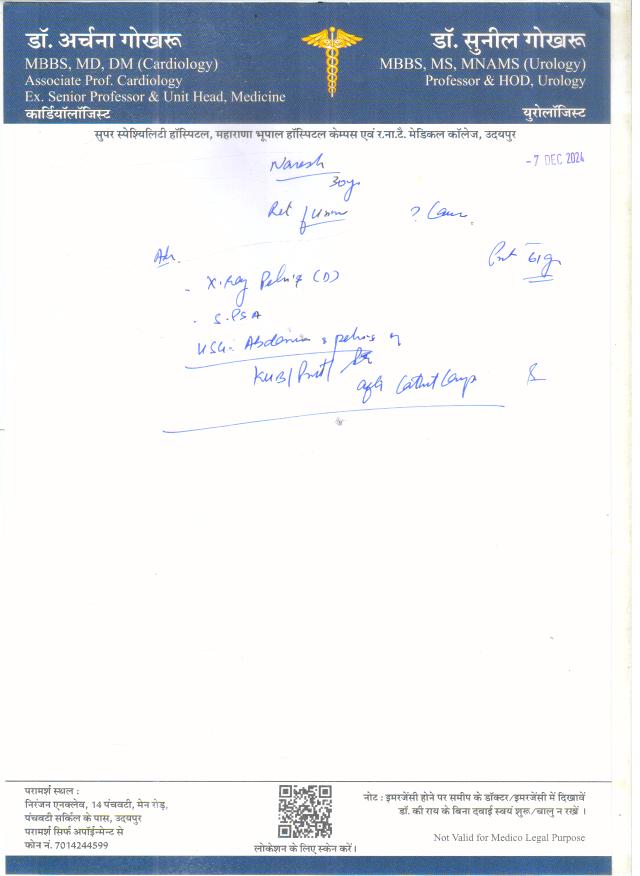 डॉ. अर्चना गोखरू
MBBS, MD, DM (Cardiology)
Associate Prof. Cardiology
Ex. Senior Professor & Unit Head, Medicine
कार्डियॉलॉजिस्ट
डॉ. सुनील गोखरू
MBBS, MS, MNAMS (Urology)
Professor & HOD, Urology
युरोलॉजिस्ट
सुपर स्पेशियलिटी हॉस्पिटल, महाराणा भूपाल हॉस्पिटल केम्पस एवं र.ना.टै. मेडिकल कॉलेज, उदयपुर
-7 DEC 2024
Naresh
30y
Ret of
?
Adv.
61g
- X-Ray Pelvis
- S.PSA
USG- Abdomen & pelvis
KUB/Prost/
परामर्श स्थल :
निरंजन एनक्लेव, 14 पंचवटी, मेन रोड़,
पंचवटी सर्किल के पास, उदयपुर
परामर्श सिर्फ अपॉईन्मेन्ट से
फोन नं. 7014244599
लोकेशन के लिए स्केन करें।
नोट : इमरजेंसी होने पर समीप के डॉक्टर/इमरजेंसी में दिखावें
डॉ. की राय के बिना दवाई स्वयं शुरू/चालु न रखें ।
Not Valid for Medico Legal Purpose